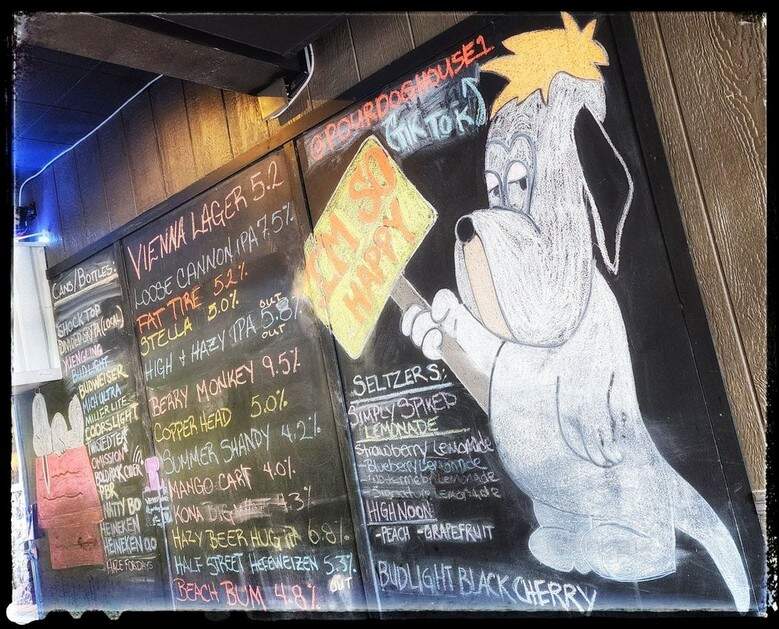 CANS/BOTTLES:
SHOCK TOP
(LOCAL)
YUENGLING
BUDLIGHT
BUDWEISER
MICH ULTRA
MILLER LITE
COORSLIGHT
TWISTED TEA
OMISSION
PBR
NATTY BO
HEINEKEN
HEINEKEN 0.0
VIENNA LAGER 5.2
LOOSE CANNON IPA 7.5%
FAT TIRE 5.2%
STELLA 5.0% OUT
HIGH + HAZY IPA 5.8%
OUT
BEARY MONKEY 9.5%
COPPERHEAD 5.0%
SUMMER SHANDY 4.2%
MANGO CART 4.0%
KONA 4.3%
HAZY BEER HUG IPA 6.8%
HALF STREET HEFEWEIZEN 5.3%
BEACH BUM 4.8% OUT
@POURDOGHOUSE1
(TIKTOK)
I'M SO
HAPPY
SELTZERS:
SIMPLY SPIKED
LEMONADE
Strawberry Lemonade
-Blueberry Lemonade
-Watermelon Lemonade
-Signature Lemonade
HIGH NOON:
-PEACH -GRAPEFRUIT
BUDLIGHT BLACK CHERRY